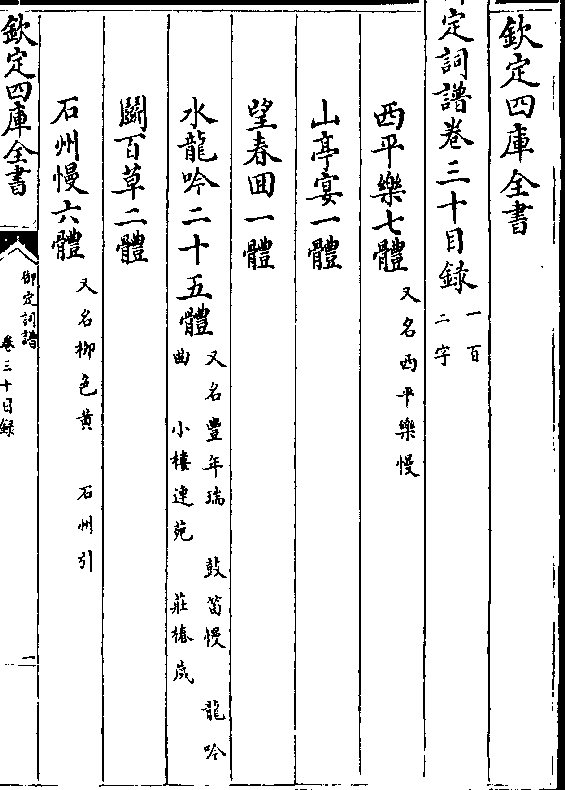 欽定四庫全書
定詞譜卷三十目録 一百二字
西平樂七體 又名西平樂慢
山亭宴一體
望春回一體
水龍吟二十五體 又名豐年瑞 鼓笛慢 龍吟曲 小樓連苑 莊椿歲
鬭百草二體
石州慢六體 又名柳色黃 石州引
欽定四庫全書
御定詞譜
卷三十目録
一